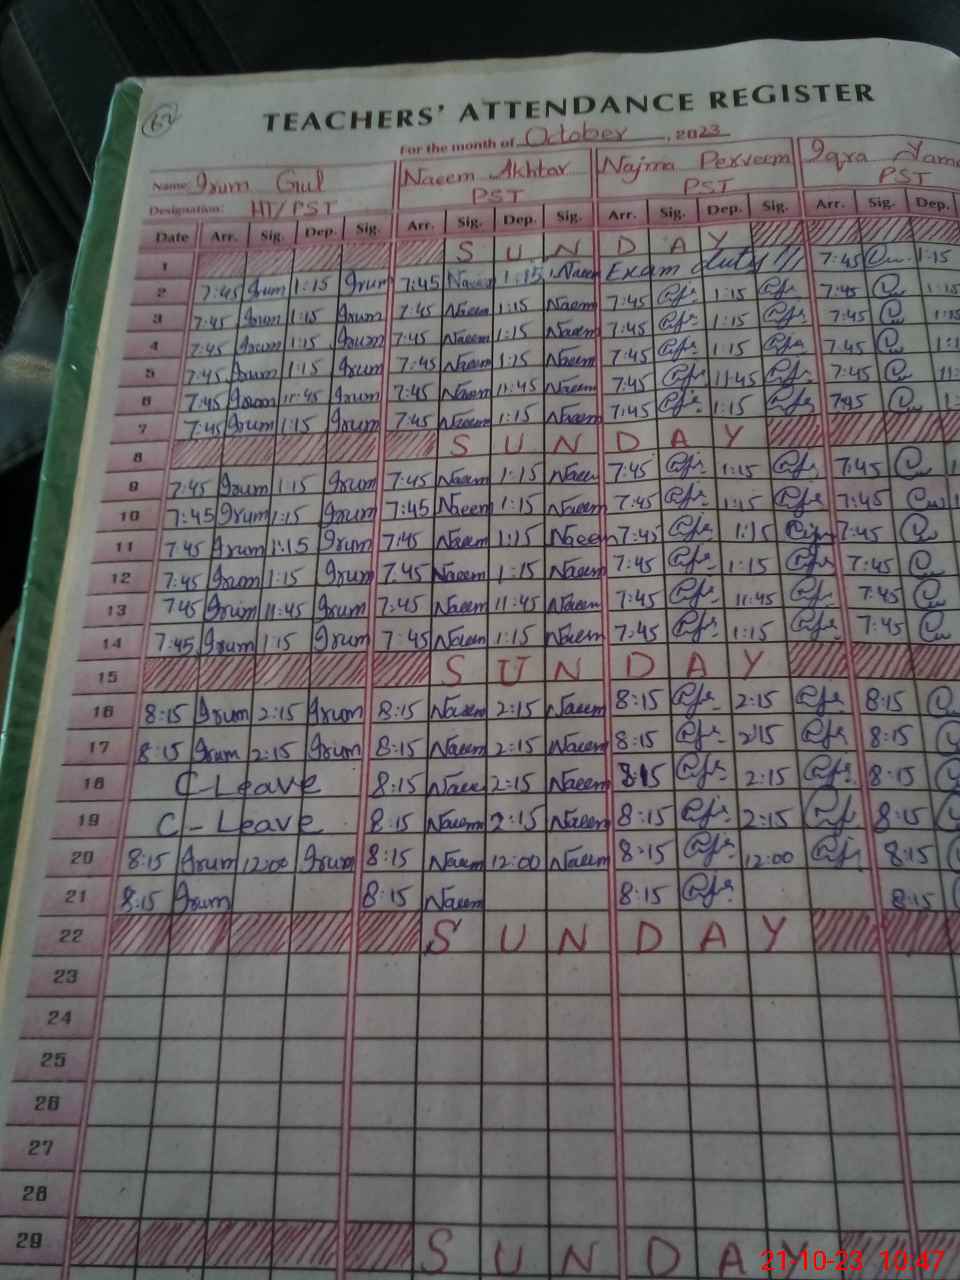 62
TEACHERS' ATTENDANCE REGISTER
For the month of October, 2023
Name: Irum Gul Naeem Akhtar Najma Perveem Iqra
Designation: HT/PST PST PST PST
Date Arr. Sig. Dep. Sig. Arr. Sig. Dep. Sig. Arr. Sig. Dep. Sig. Arr. Sig. Dep.
1 S U N D A Y
2 7:45 Irum 1:15 Irum 7:45 Naeem 1:15 Naeem Exam duty!!! 7:45 1:15
3 7:45 Irum 1:15 Irum 7:45 Naeem 1:15 Naeem 7:45 1:15 7:45 1:15
4 7:45 Irum 1:15 Irum 7:45 Naeem 1:15 Naeem 7:45 1:15 7:45
5 7:45 Irum 1:15 Irum 7:45 Naeem 1:15 Naeem 7:45 1:15 7:45
6 7:45 Irum 11:45 Irum 7:45 Naeem 11:45 Naeem 7:45 11:45 7:45
7 7:45 Irum 1:15 Irum 7:45 Naeem 1:15 Naeem 7:45 1:15 7:45
8 S U N D A Y
9 7:45 Irum 1:15 Irum 7:45 Naeem 1:15 Naeem 7:45 1:15 7:45
10 7:45 Irum 1:15 Irum 7:45 Naeem 1:15 Naeem 7:45 1:15 7:45
11 7:45 Irum 1:15 Irum 7:45 Naeem 1:15 Naeem 7:45 1:15 7:45
12 7:45 Irum 1:15 Irum 7:45 Naeem 1:15 Naeem 7:45 1:15 7:45
13 7:45 Irum 11:45 Irum 7:45 Naeem 11:45 Naeem 7:45 11:45 7:45
14 7:45 Irum 1:15 Irum 7:45 Naeem 1:15 Naeem 7:45 1:15 7:45
15 S U N D A Y
16 8:15 Irum 2:15 Irum 8:15 Naeem 2:15 Naeem 8:15 2:15 8:15
17 8:15 Irum 2:15 Irum 8:15 Naeem 2:15 Naeem 8:15 2:15 8:15
18 C Leave 8:15 Naeem 2:15 Naeem 8:15 2:15 8:15
19 C - Leave 8:15 Naeem 2:15 Naeem 8:15 2:15 8:15
20 8:15 Irum 12:00 Irum 8:15 Naeem 12:00 Naeem 8:15 12:00 8:15
21 8:15 Irum 8:15 Naeem 8:15 8:15
22 S U N D A Y
23
24
25
26
27
28
29 S U N D A Y
21-10-23 10:47